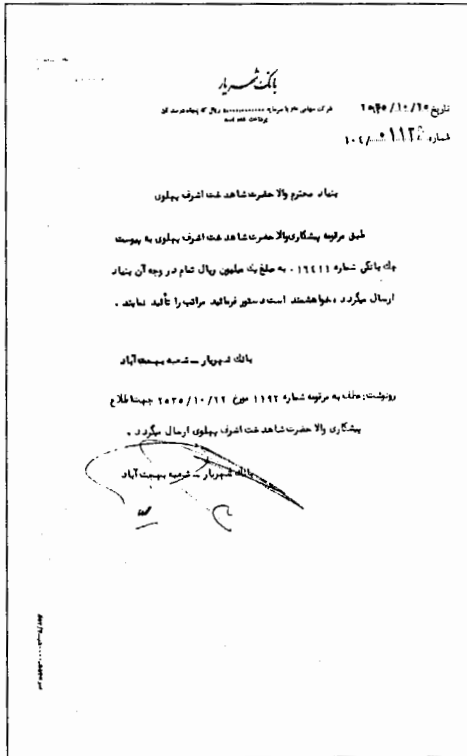 بانک شهریار
شرکت سهامی عام با سرمایه ریال که پنجاه درصد آن
پرداخت شده است
تاریخ ۲۵۳۵/۱۰/۲۵
شماره
بنیاد محترم والا حضرت شاهدخت اشرف پهلوی
طبق مرقومه پیشکاری والا حضرت شاهدخت اشرف پهلوی به پیوست
چك بانکی شماره ۰۱۶۴۱۱ به مبلغ يك میلیون ریال تمام در وجه آن بنیاد
ارسال میگردد ، خواهشمند است دستور فرمائید مراتب را تأئید نمایند .
بانك شهریار ــ شعبه بهجت آباد
رونوشت: عطف به مرقومه شماره ۱۱۹۲ مورخ ۲۵۳۵/۱۰/۲۲ جهت اطلاع
پیشکاری والا حضرت شاهدخت اشرف پهلوی ارسال میگردد .
بانك شهریار ــ شعبه بهجت آباد